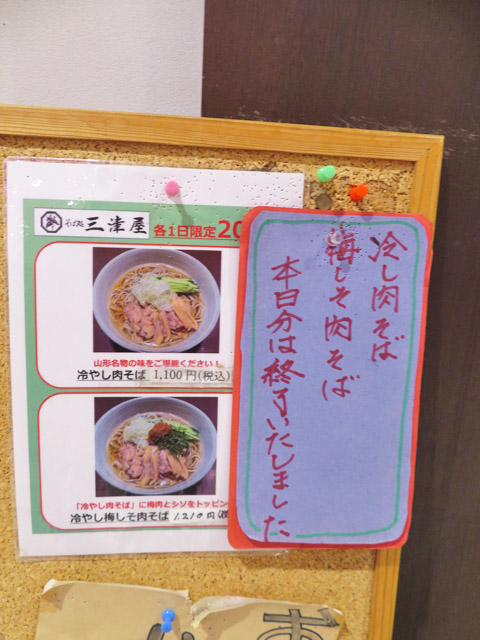 そば処 三津屋
各1日限定20
山形名物の味をご堪能ください！
冷やし肉そば 1,100円(税込)
「冷やし肉そば」に梅肉とシソをトッピン
冷やし梅しそ肉そば 1,210円(税
冷し肉そば
梅しそ肉そば
本日分は終了いたしました